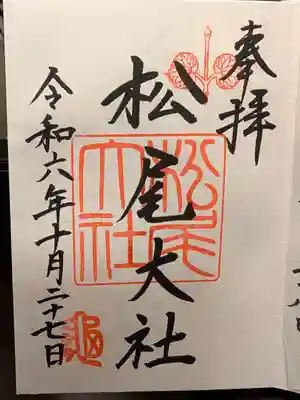 奉拝
松尾大社
松尾大社
令和六年十月二十七日